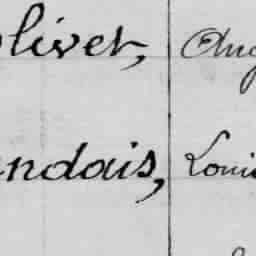 olivet, Aug
endais, Loui